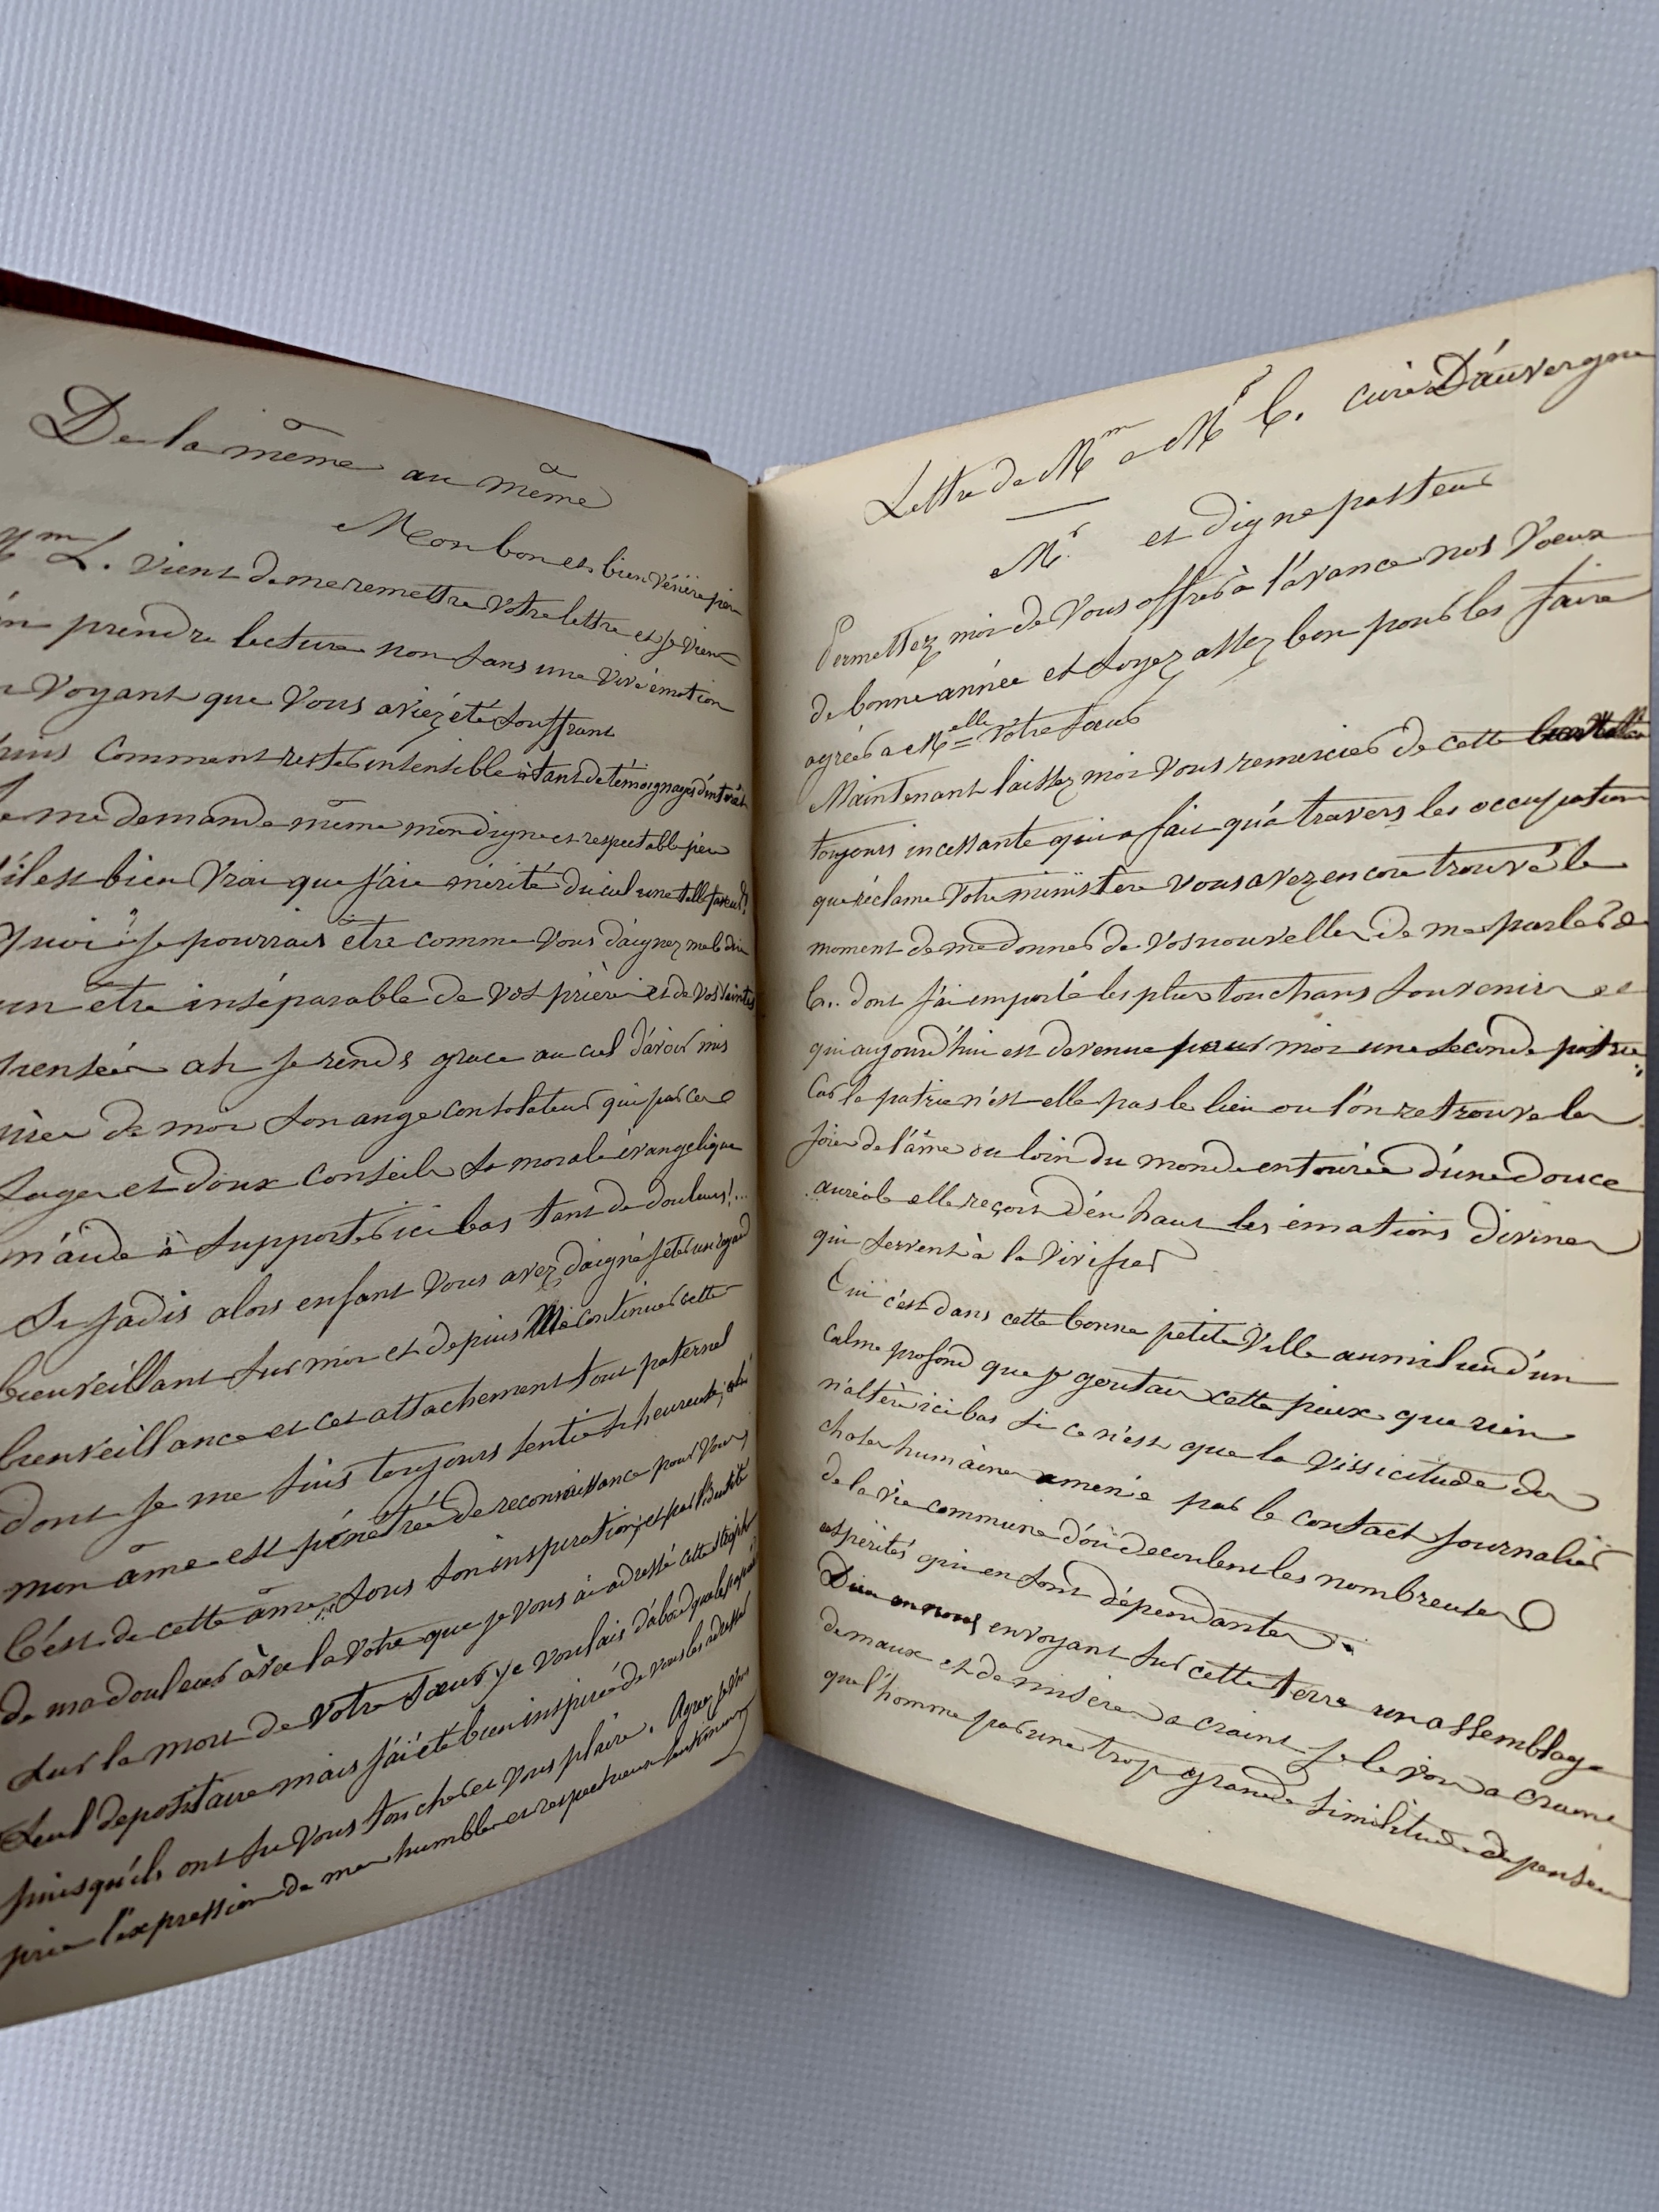 De la même au même
Mon bon et bien vénéré père
Mme L. vient de me remettre votre lettre et je viens
prendre lecture non sans une vive émotion
voyant que vous aviez été souffrant
comment rester insensible à tant de témoignages d'intérêt
me demande même mon digne et respectable père
s'il est bien vrai que j'aie mérité du ciel une telle faveur!
Quoi je pourrais être comme vous daignez me le dire
un être inséparable de vos prières et de vos saintes
pensées ah je rends grace au ciel d'avoir mis
de moi son ange consolateur qui par ces
sages et doux conseils sa morale évangelique
m'aide à supporter ici bas tant de douleurs!...
Si jadis alors enfant vous avez daigné jeter un regard
bienveillant sur moi et depuis me continuer cette
bienveillance et cet attachement tout paternel
dont je me suis toujours sentie si heureuse,
mon âme est pénétrée de reconnaissance pour vous,
C'est de cette âme, sous son inspiration, et par l'identité
de ma douleur avec la votre que je vous ai adressé cette
sur la mort de votre sœur, je voulais d'abord que le papier
seul depositaire mais j'ai été bien inspirée de vous les adresser
puisqu'ils ont su vous toucher et vous plaire. Agréez je vous
prie l'expression de mes humbles et respectueux sentiments
Lettre de Mme a Mr C. curé D'auvergne
Mr. et digne pasteur
Permettez moi de vous offrir à l'avance nos vœux
de bonne année et soyez assez bon pour les faire
agréer a Melle votre sœur
Maintenant laissez moi vous remercier de cette
toujours incessante qui a fait qu'à travers les occupations
que réclame votre ministère vous avez encore trouvé le
moment de me donner de vos nouvelles de me parler de
C... dont j'ai emporté les plus touchans souvenirs et
qui aujourd'hui est devenue pour moi une seconde patrie
Car la patrie n'est-elle pas le lieu ou l'on retrouve les
joies de l'âme ou loin du monde entourée d'une douce
auréole elle reçoit d'en haut les émotions divines
qui servent à la vivifier
Oui c'est dans cette bonne petite Ville au milieu d'un
calme profond que je goutais cette paix que rien
n'altère ici bas si ce n'est que la vissicitude des
choses humaines amenée par le contact journalier
de la vie commune d'où découlent les nombreuses
aspérités qui en sont dépendantes.
Dieu en nous envoyant sur cette terre un assemblage
de maux et de misères a craint je le vois a craint
que l'homme par une trop grande similitude de pensées